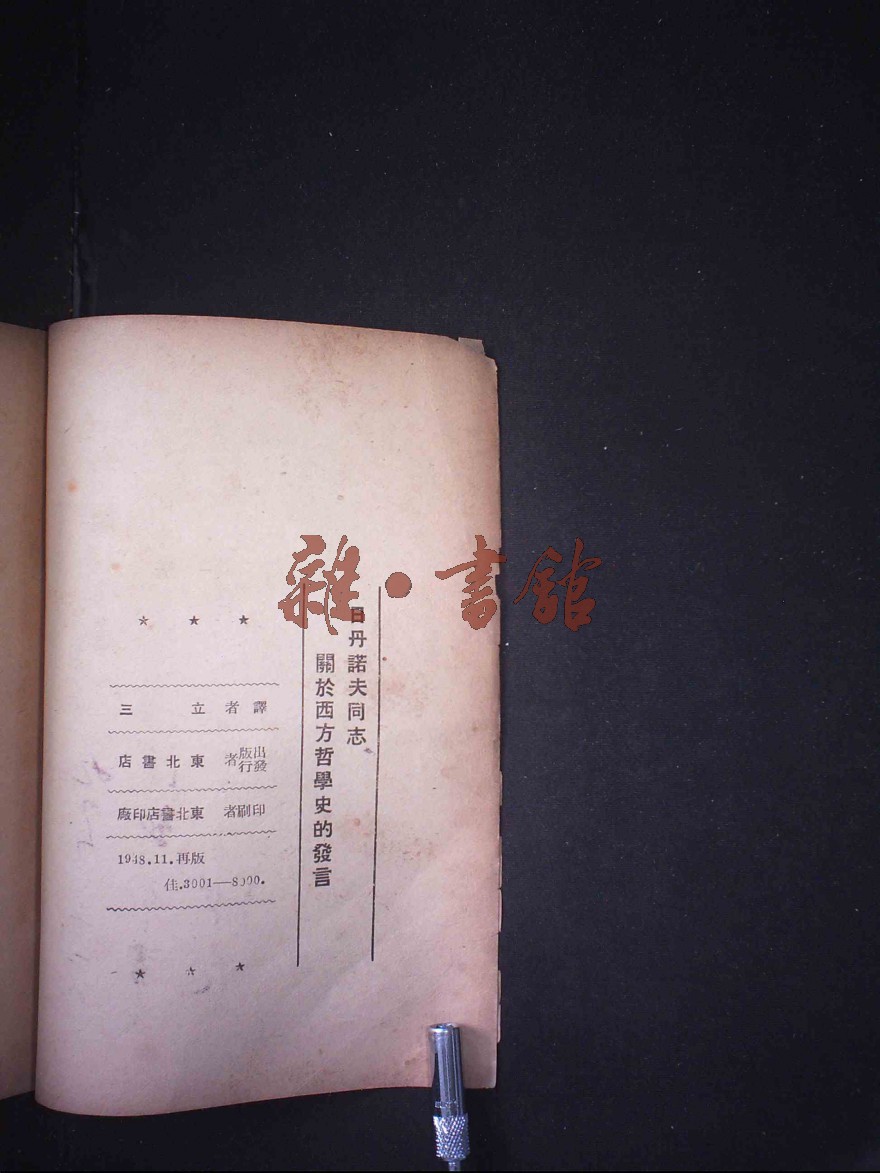 雜·書館
日丹諾夫同志
關於西方哲學史的發言
★ ★ ★
譯者 立三
出版發行者 東北書店
印刷者 東北書店印廠
1948.11.再版
佳.3001—8000.
★ ★ ★